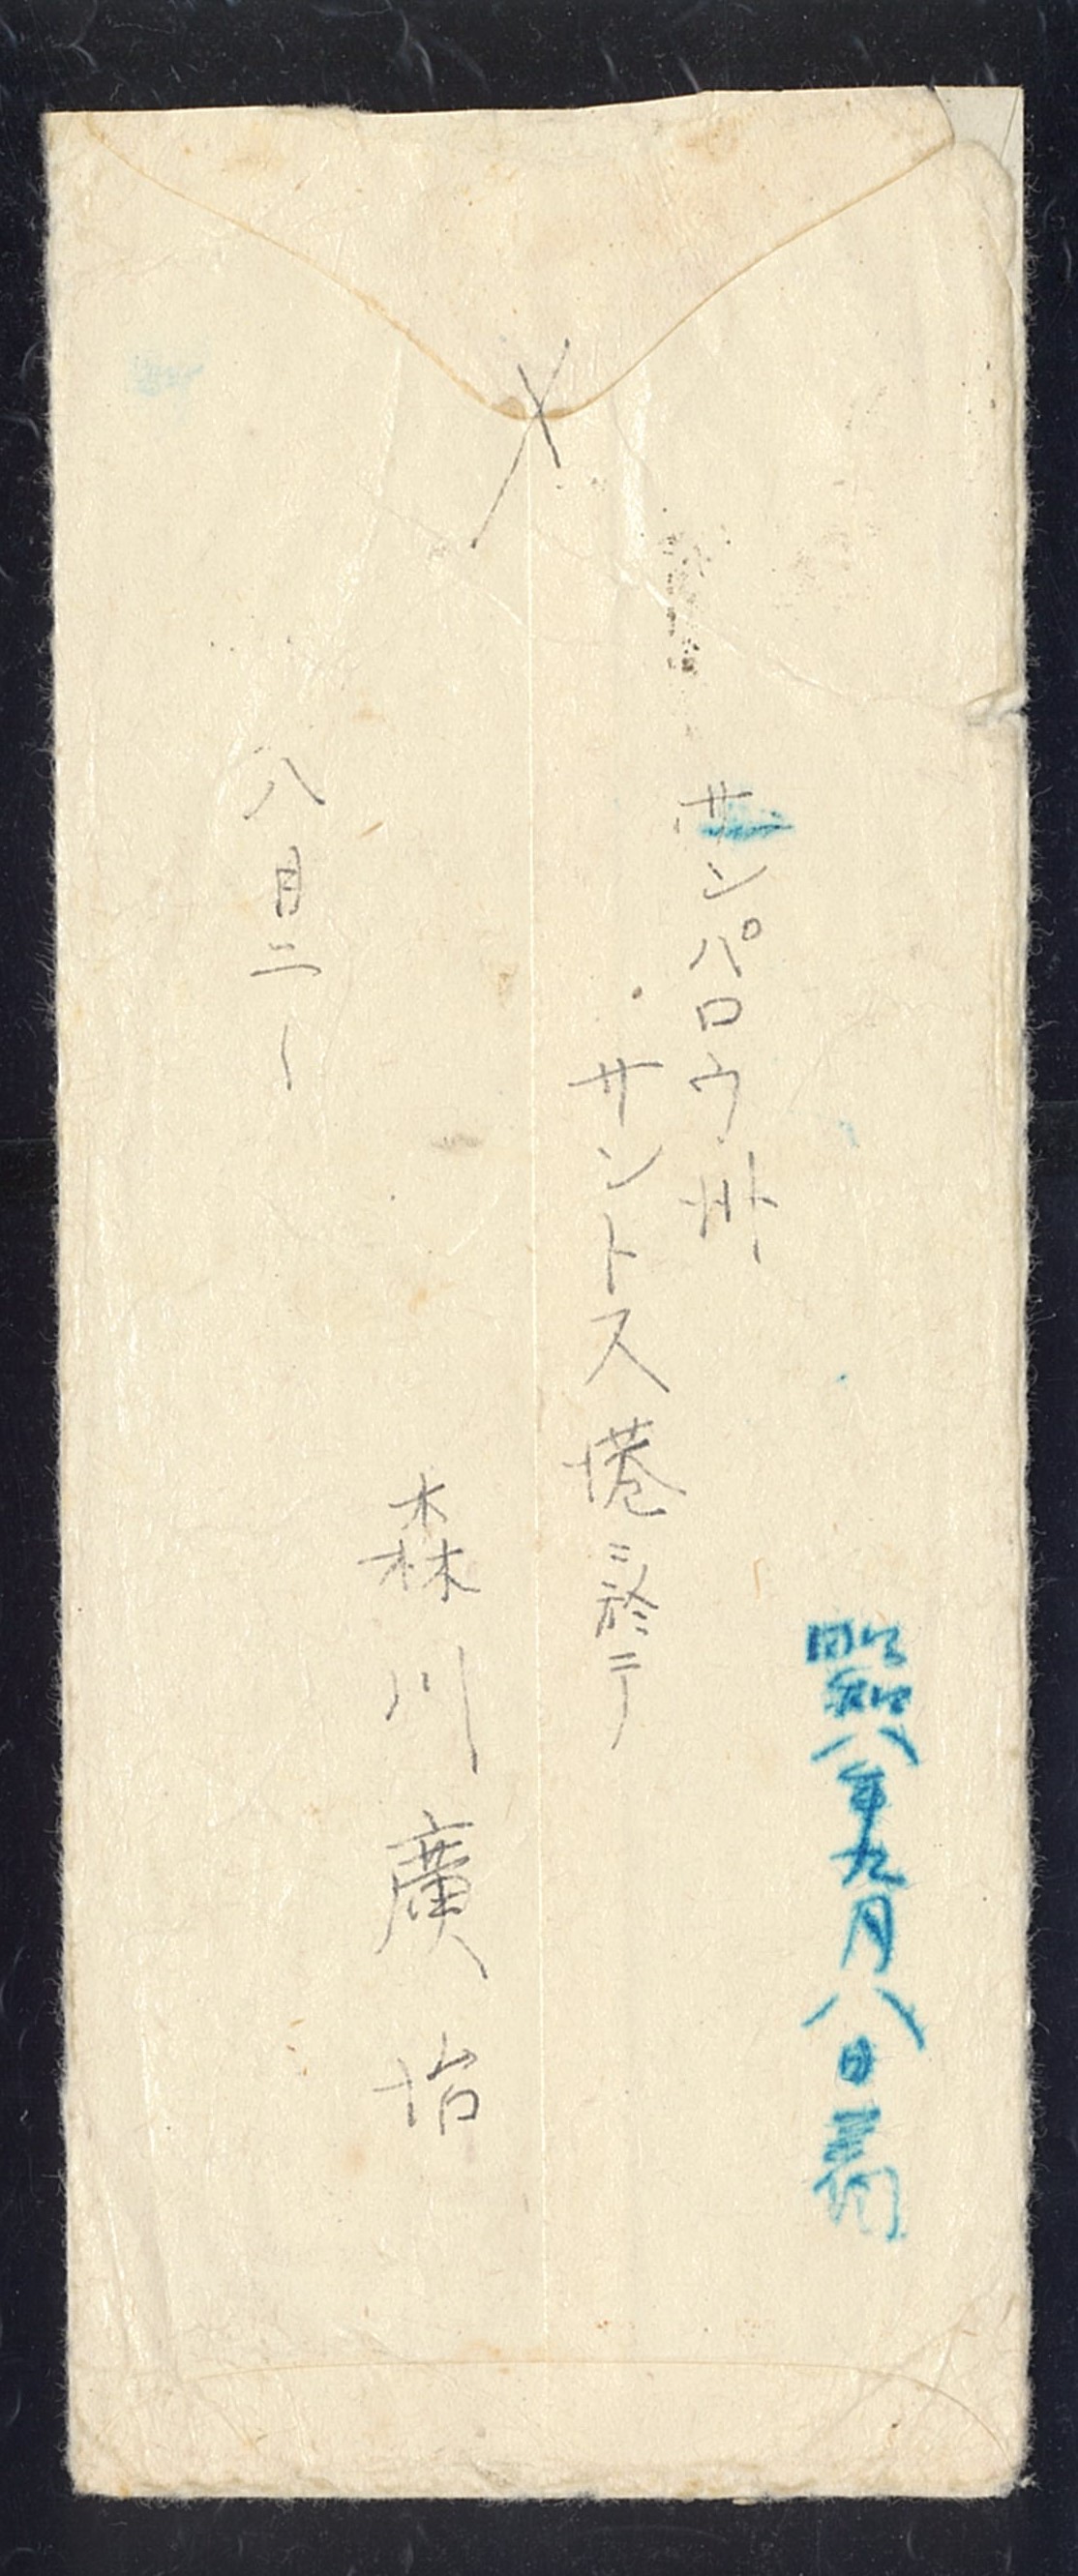 昭和八年九月八日着
サンパロウ州
サントス港ニ於テ
森川廣治
八月二